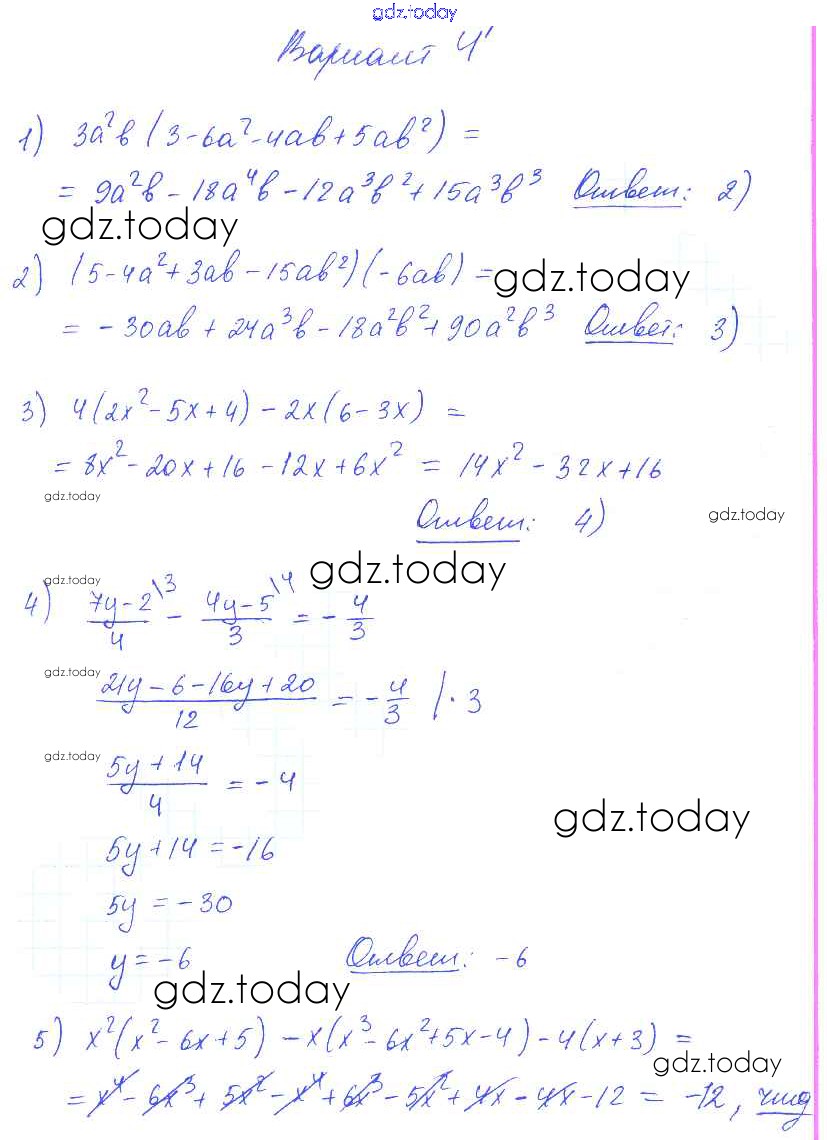 gdz.today
Вариант 4
1) 3a²b (3-6a²-4ab+5ab²) =
= 9a²b - 18a⁴b - 12a³b² + 15a³b³ Ответ: 2)
gdz.today
2) (5-4a²+3ab-15ab²)(-6ab) = gdz.today
= -30ab + 24a³b - 18a²b² + 90a²b³ Ответ: 3)
3) 4(2x²-5x+4) - 2x(6-3x) =
= 8x² - 20x + 16 - 12x + 6x² = 14x² - 32x + 16
gdz.today
Ответ: 4) gdz.today
gdz.today gdz.today
4) (7y-2)/4 \3 - (4y-5)/3 \4 = -4/3
gdz.today
(21y-6-16y+20)/12 = -4/3 |·3
gdz.today
(5y+14)/4 = -4
gdz.today
5y+14 = -16
5y = -30
y = -6 Ответ: -6
gdz.today
5) x²(x²-6x+5) - x(x³-6x²+5x-4) - 4(x+3) =
gdz.today
= x⁴ - 6x³ + 5x² - x⁴ + 6x³ - 5x² + 4x - 4x - 12 = -12,